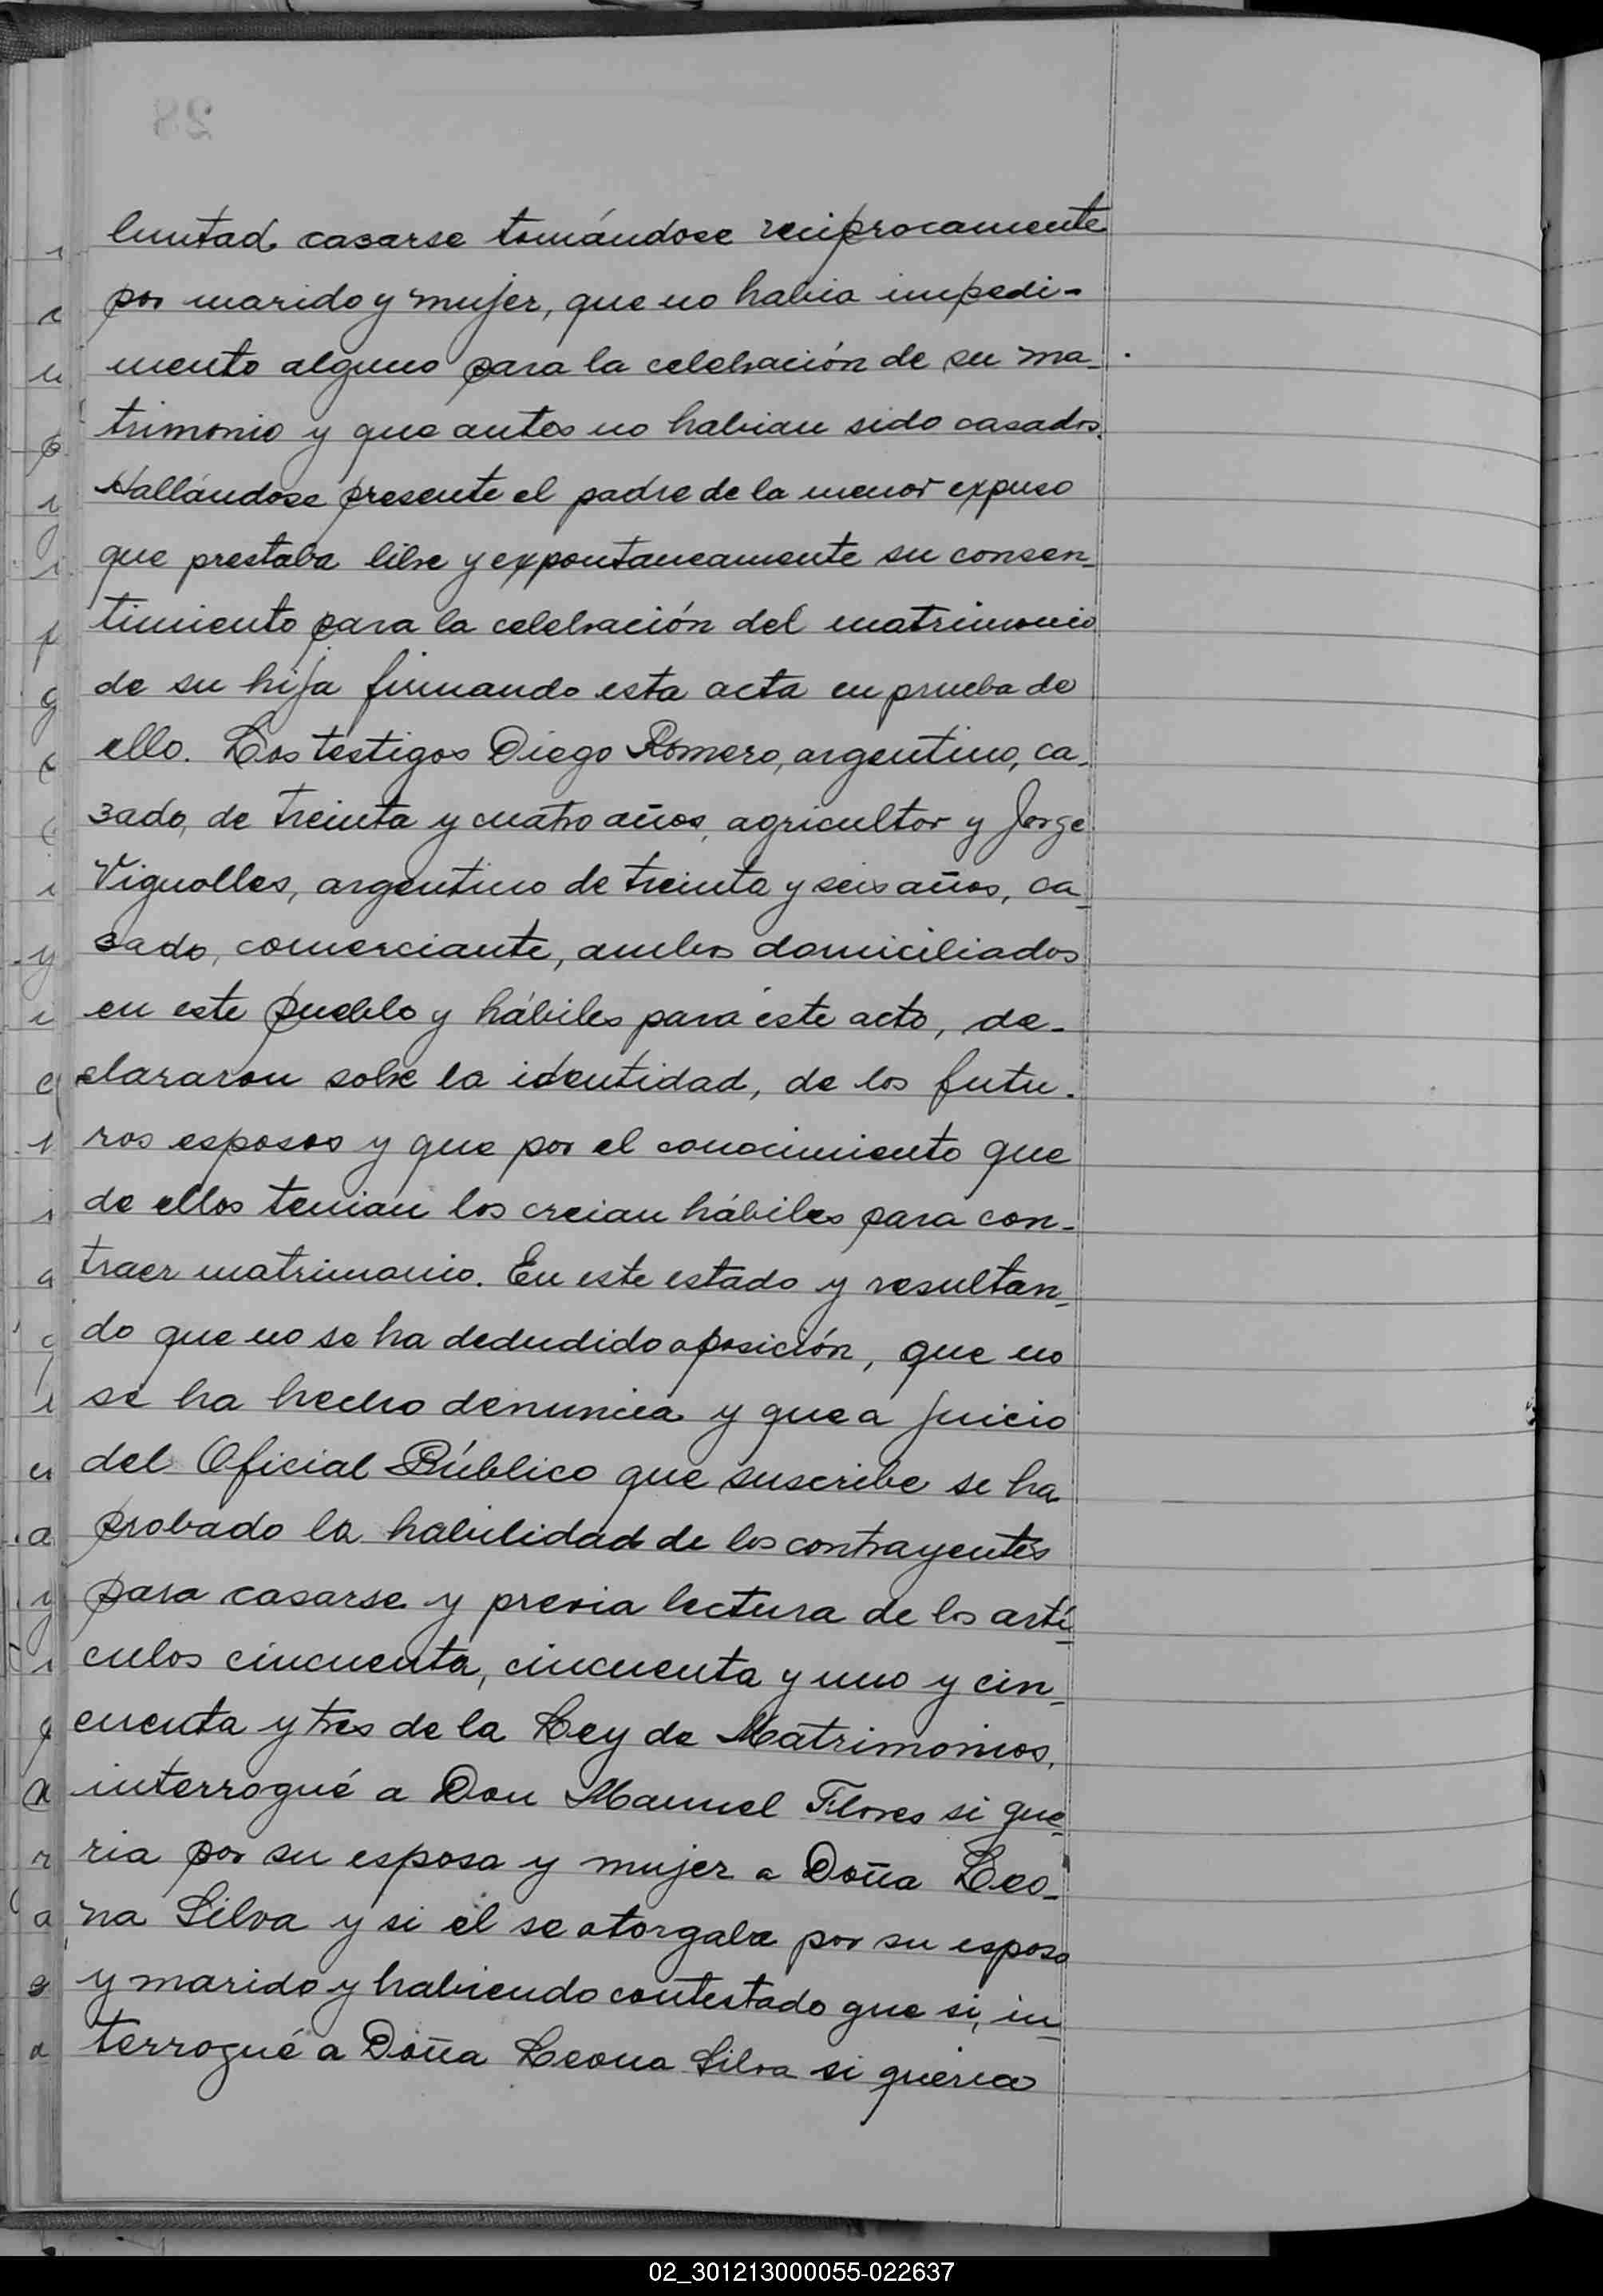 luntad casarse tomándose reciprocamente
por marido y mujer, que no habia impedi-
mento alguno para la celebración de su ma-
trimonio y que antes no habian sido casados.
Hallándose presente el padre de la menor expuso
que prestaba libre y expontaneamente su consen-
timiento para la celebración del matrimonio
de su hija firmando esta acta en prueba de
ello. Los testigos Diego Romero, argentino, ca-
sado, de treinta y cuatro años, agricultor y Jorge
Vignolles, argentino de treinta y seis años, ca-
sado, comerciante, ambos domiciliados
en este pueblo y hábiles para éste acto, de-
clararon sobre la identidad, de los futu-
ros esposos y que por el conocimiento que
de ellos tenian los creian hábiles para con-
traer matrimonio. En este estado y resultan-
do que no se ha dedudido oposición, que no
se ha hecho denuncia y que a juicio
del Oficial Público que suscribe se ha
probado la habilidad de los contrayentes
para casarse y previa lectura de los artí-
culos cincuenta, cincuenta y uno y cin-
cuenta y tres de la Ley de Matrimonios,
interrogué a Don Manuel Flores si que-
ria por su esposa y mujer a Doña Leo-
na Silva y si él se otorgaba por su esposo
y marido y habiendo contestado que si, in-
terrogué a Doña Leona Silva si queria
02_301213000055-022637